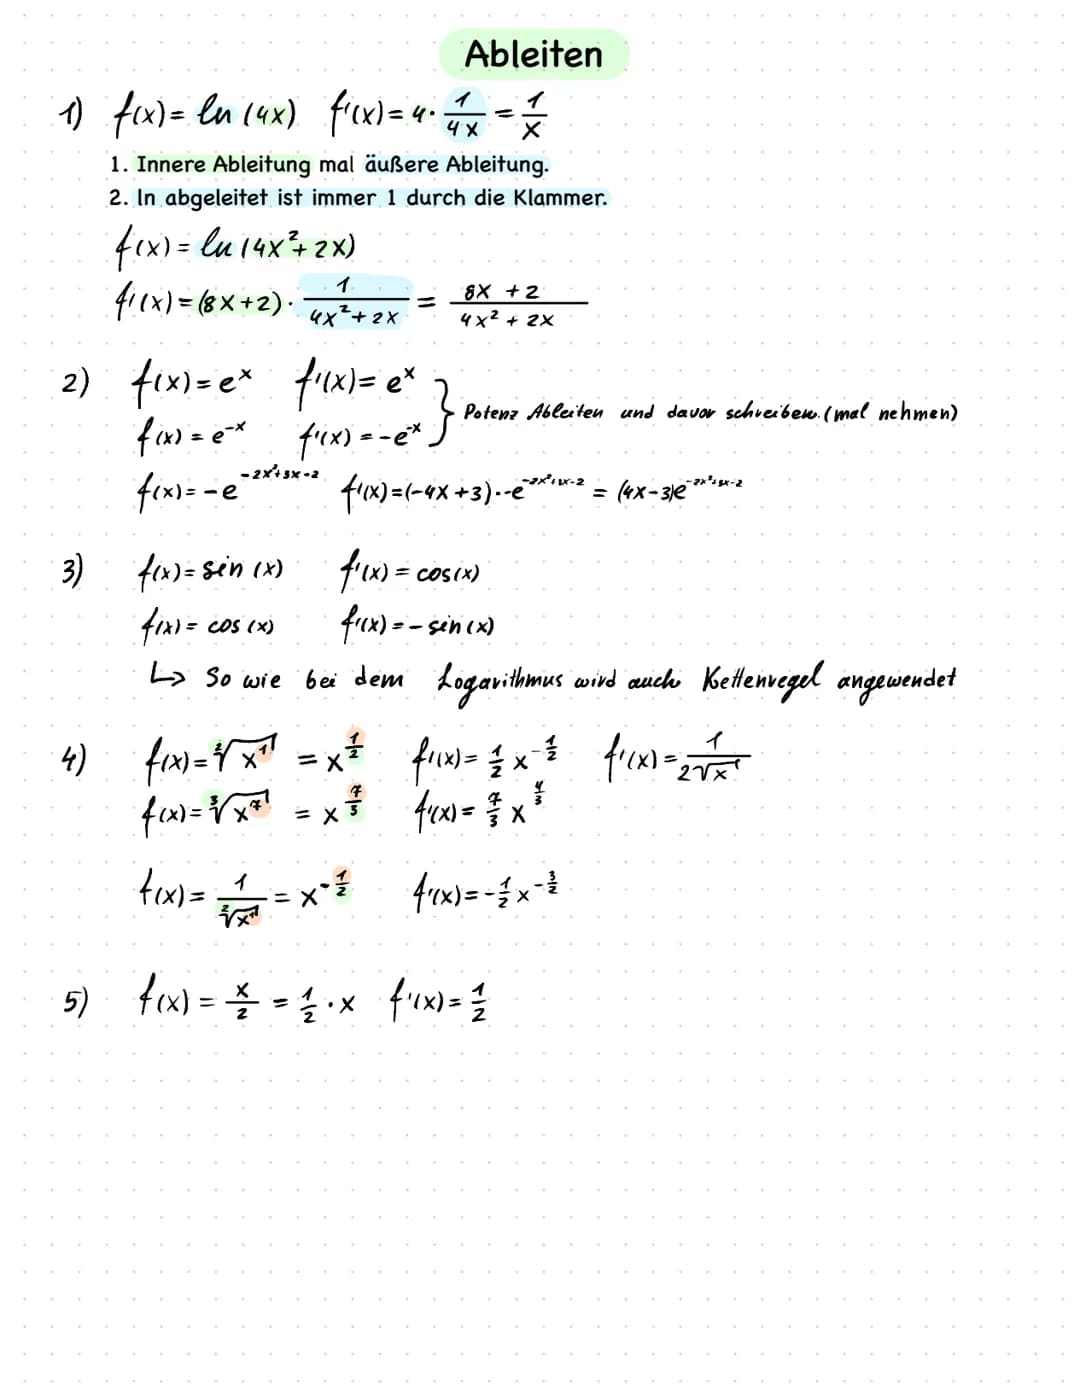 Ableiten
1) f(x) = ln (4x) f'(x) = 4 · 1/4x = 1/x
1. Innere Ableitung mal äußere Ableitung.
2. ln abgeleitet ist immer 1 durch die Klammer.
f(x) = ln (4x² + 2x)
f'(x) = (8x+2) · 1/(4x² + 2x) = (8x + 2)/(4x² + 2x)
2) f(x) = eˣ f'(x) = eˣ } Potenz Ableiten und davor schreiben. (mal nehmen)
f(x) = e⁻ˣ f'(x) = -e⁻ˣ
f(x) = -e^(-2x²+3x-2) f'(x) = (-4x+3)·-e^(-2x²+3x-2) = (4x-3)e^(-2x²+3x-2)
3) f(x) = sin (x) f'(x) = cos(x)
f(x) = cos (x) f'(x) = - sin (x)
↳ So wie bei dem Logarithmus wird auch Kettenregel angewendet
4) f(x) = ²√x¹ = x^(1/2) f'(x) = 1/2 x^(-1/2) f'(x) = 1/(2√x)
f(x) = ³√x⁷ = x^(7/3) f'(x) = 7/3 x^(4/3)
f(x) = 1/(²√x¹) = x^(-1/2) f'(x) = -1/2 x^(-3/2)
5) f(x) = x/2 = 1/2 · x f'(x) = 1/2